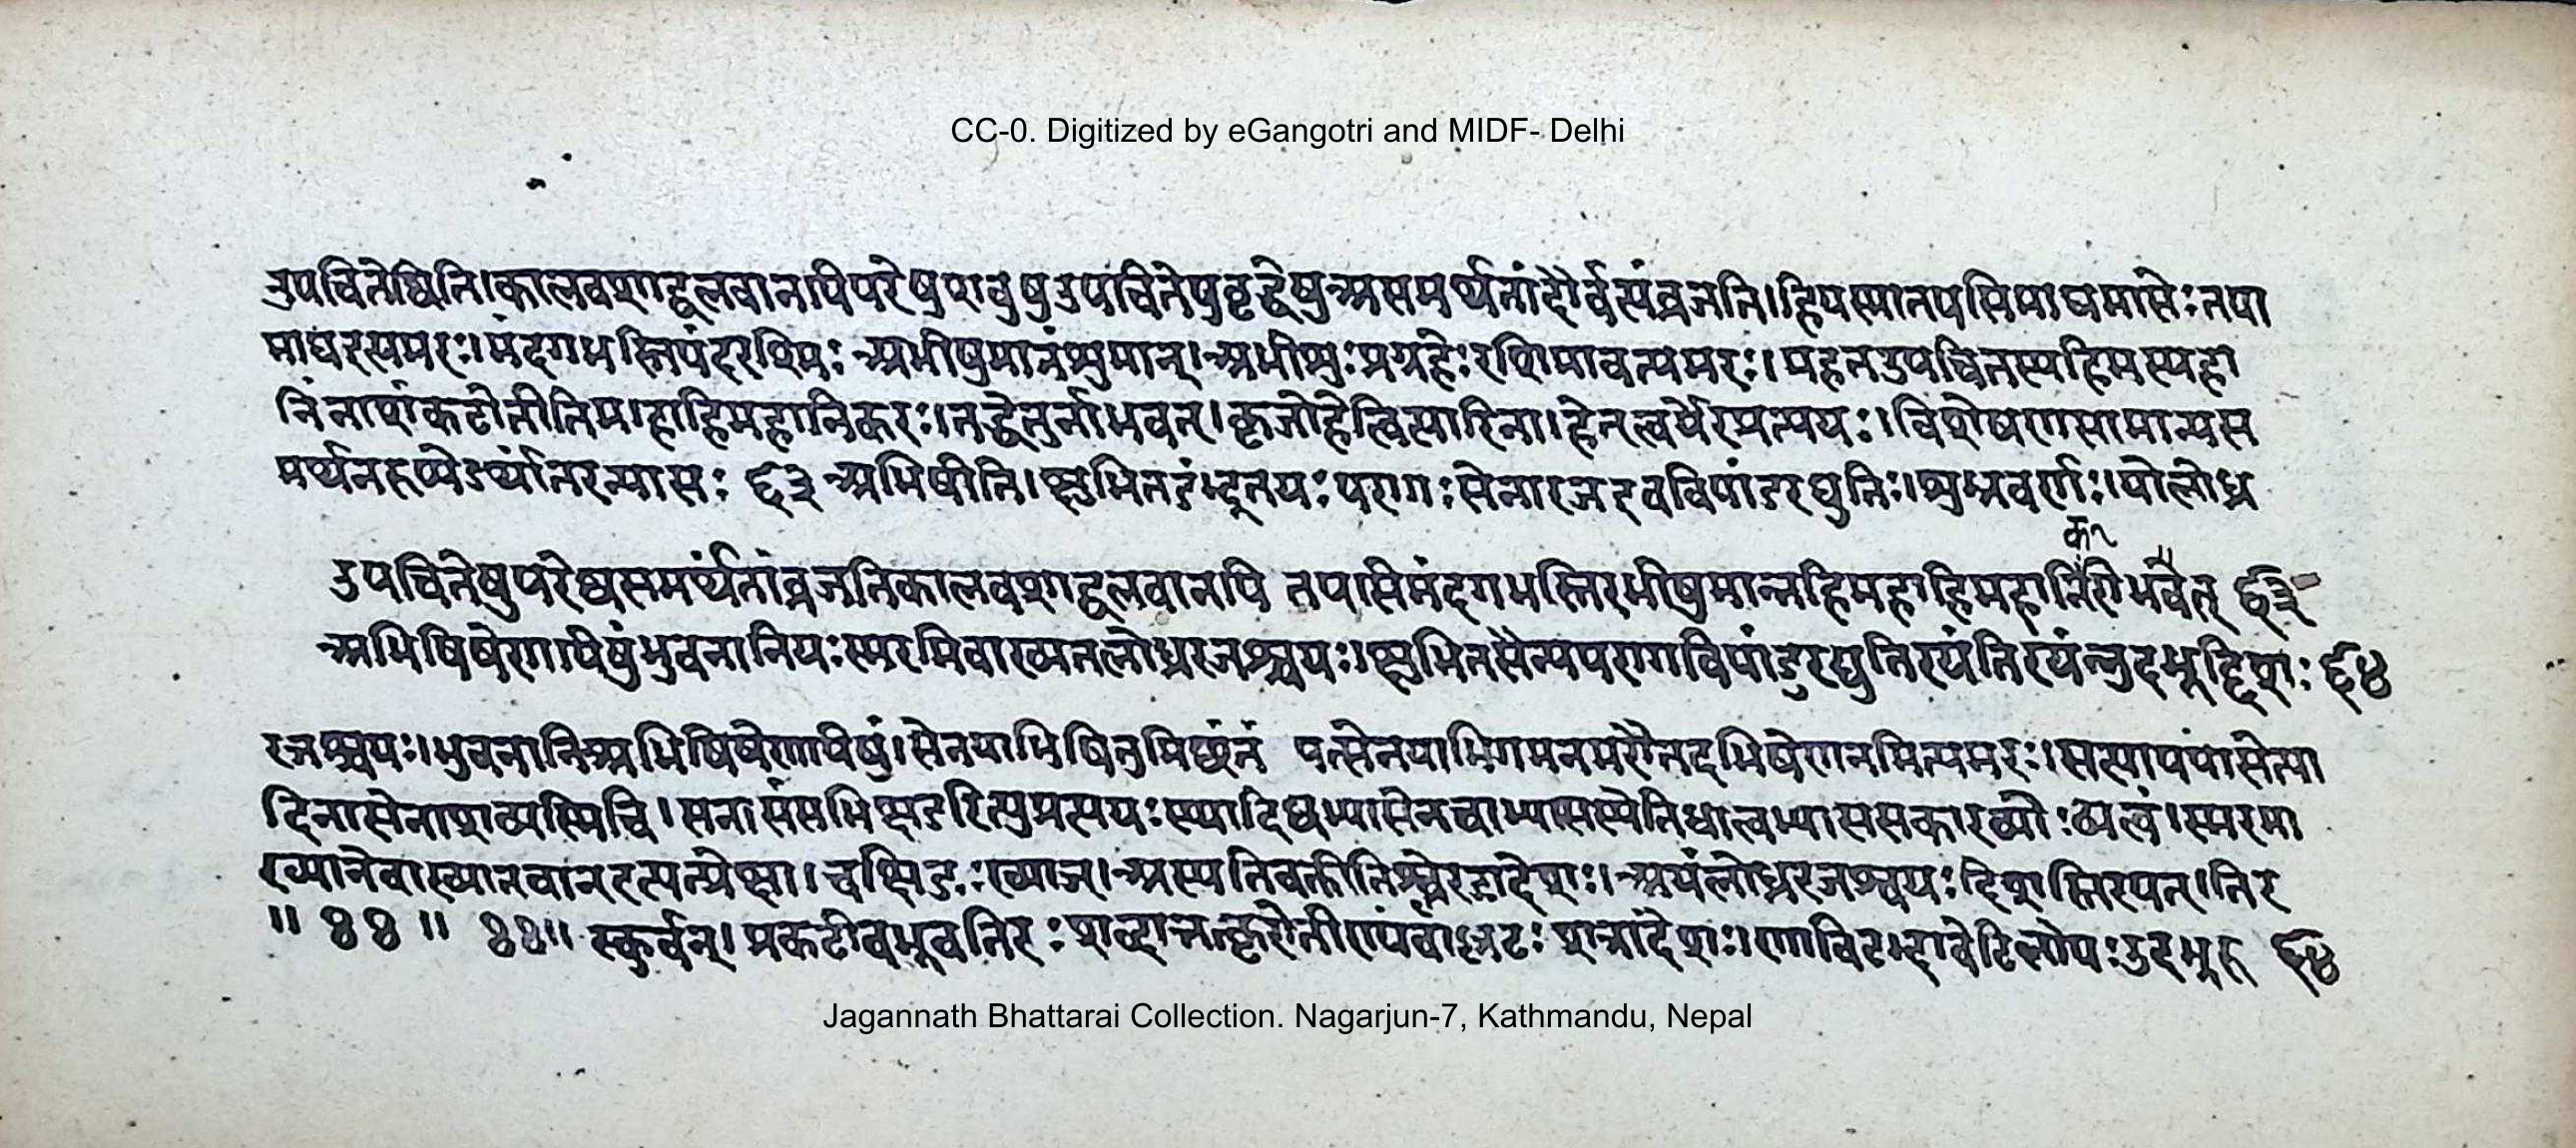 CC-0. Digitized by eGangotri and MIDF- Delhi
उपचितेष्विति।कालवशाद्बलवानपिपरेषुशत्रुषुउपचितेषुवृद्धेषुअसमर्थतांदौर्बल्यंव्रजति।हियस्मात्तपसिमाघमासेःतपा
माघइत्यमरः।मंदगभस्तिर्मंदरश्मिः अभीषुमानंशुमान्।अभीशुःप्रग्रहेःरश्मिमावित्यमरः।महतउपचितस्यहिमस्यहा
निंनाशंकरोतीतिमहाहिमहानिकरः।तद्धेतुर्नाभवत्।कृञोहेत्वित्यादिना।हेतत्वर्थेटप्रत्ययः।विशेषणसामान्यस
मर्थनरूपोऽर्थांतरन्यासः ६३ अभिषीति।क्षुभितउद्धूतयःपरागःसेनारजइवविपांडरद्युतिः।शुभ्रवर्णः।योलोध्र
क
उपचितेषुपरेष्वसमर्थतांव्रजतिकालवशाद्बलवानपि तपसिमंदगभस्तिरभीषुमान्नहिमहाहिमहानिरोभवेत् ६३
अभिषिषेणयिषुंभुवनानियःस्मरमिवाख्यतलोध्ररजश्चयः।क्षुभितसैन्यपरागविपांडुरद्युतिरयंतिरयंन्नुदभूद्दिशः ६४
रजश्चयः।भुवनानिअभिषिषेणयिषुं।सेनयाभिषितुमिछंतं यत्सेनयाभिगमनमरौतदभिषेणनमित्यमरः।सत्यापपाशेत्या
दिनासेनाशब्दास्मिचि।सनासंसभिक्षउरित्युप्रत्ययःस्यादिष्वभ्यासेनचाभ्यासस्येतिधात्वभ्याससकारव्योःष्यत्वं।स्मरमा
ख्यानेवाख्यानवानइत्युत्प्रेक्षा।चक्षिङःख्याञ्।अस्यतिवक्तीतिश्च्लेरङादेशः।अयंलोध्ररजश्चयःदिशस्तिरयन्।तिर
॥ ४४ ॥ ४४॥ स्कुर्वन्।प्रकटीबभूवतिरःशब्दात्तत्करोतीण्यंताल्लटःशत्रादेशः।णाविष्टवद्भावेटिलोपःउदभूरु ६४
Jagannath Bhattarai Collection. Nagarjun-7, Kathmandu, Nepal